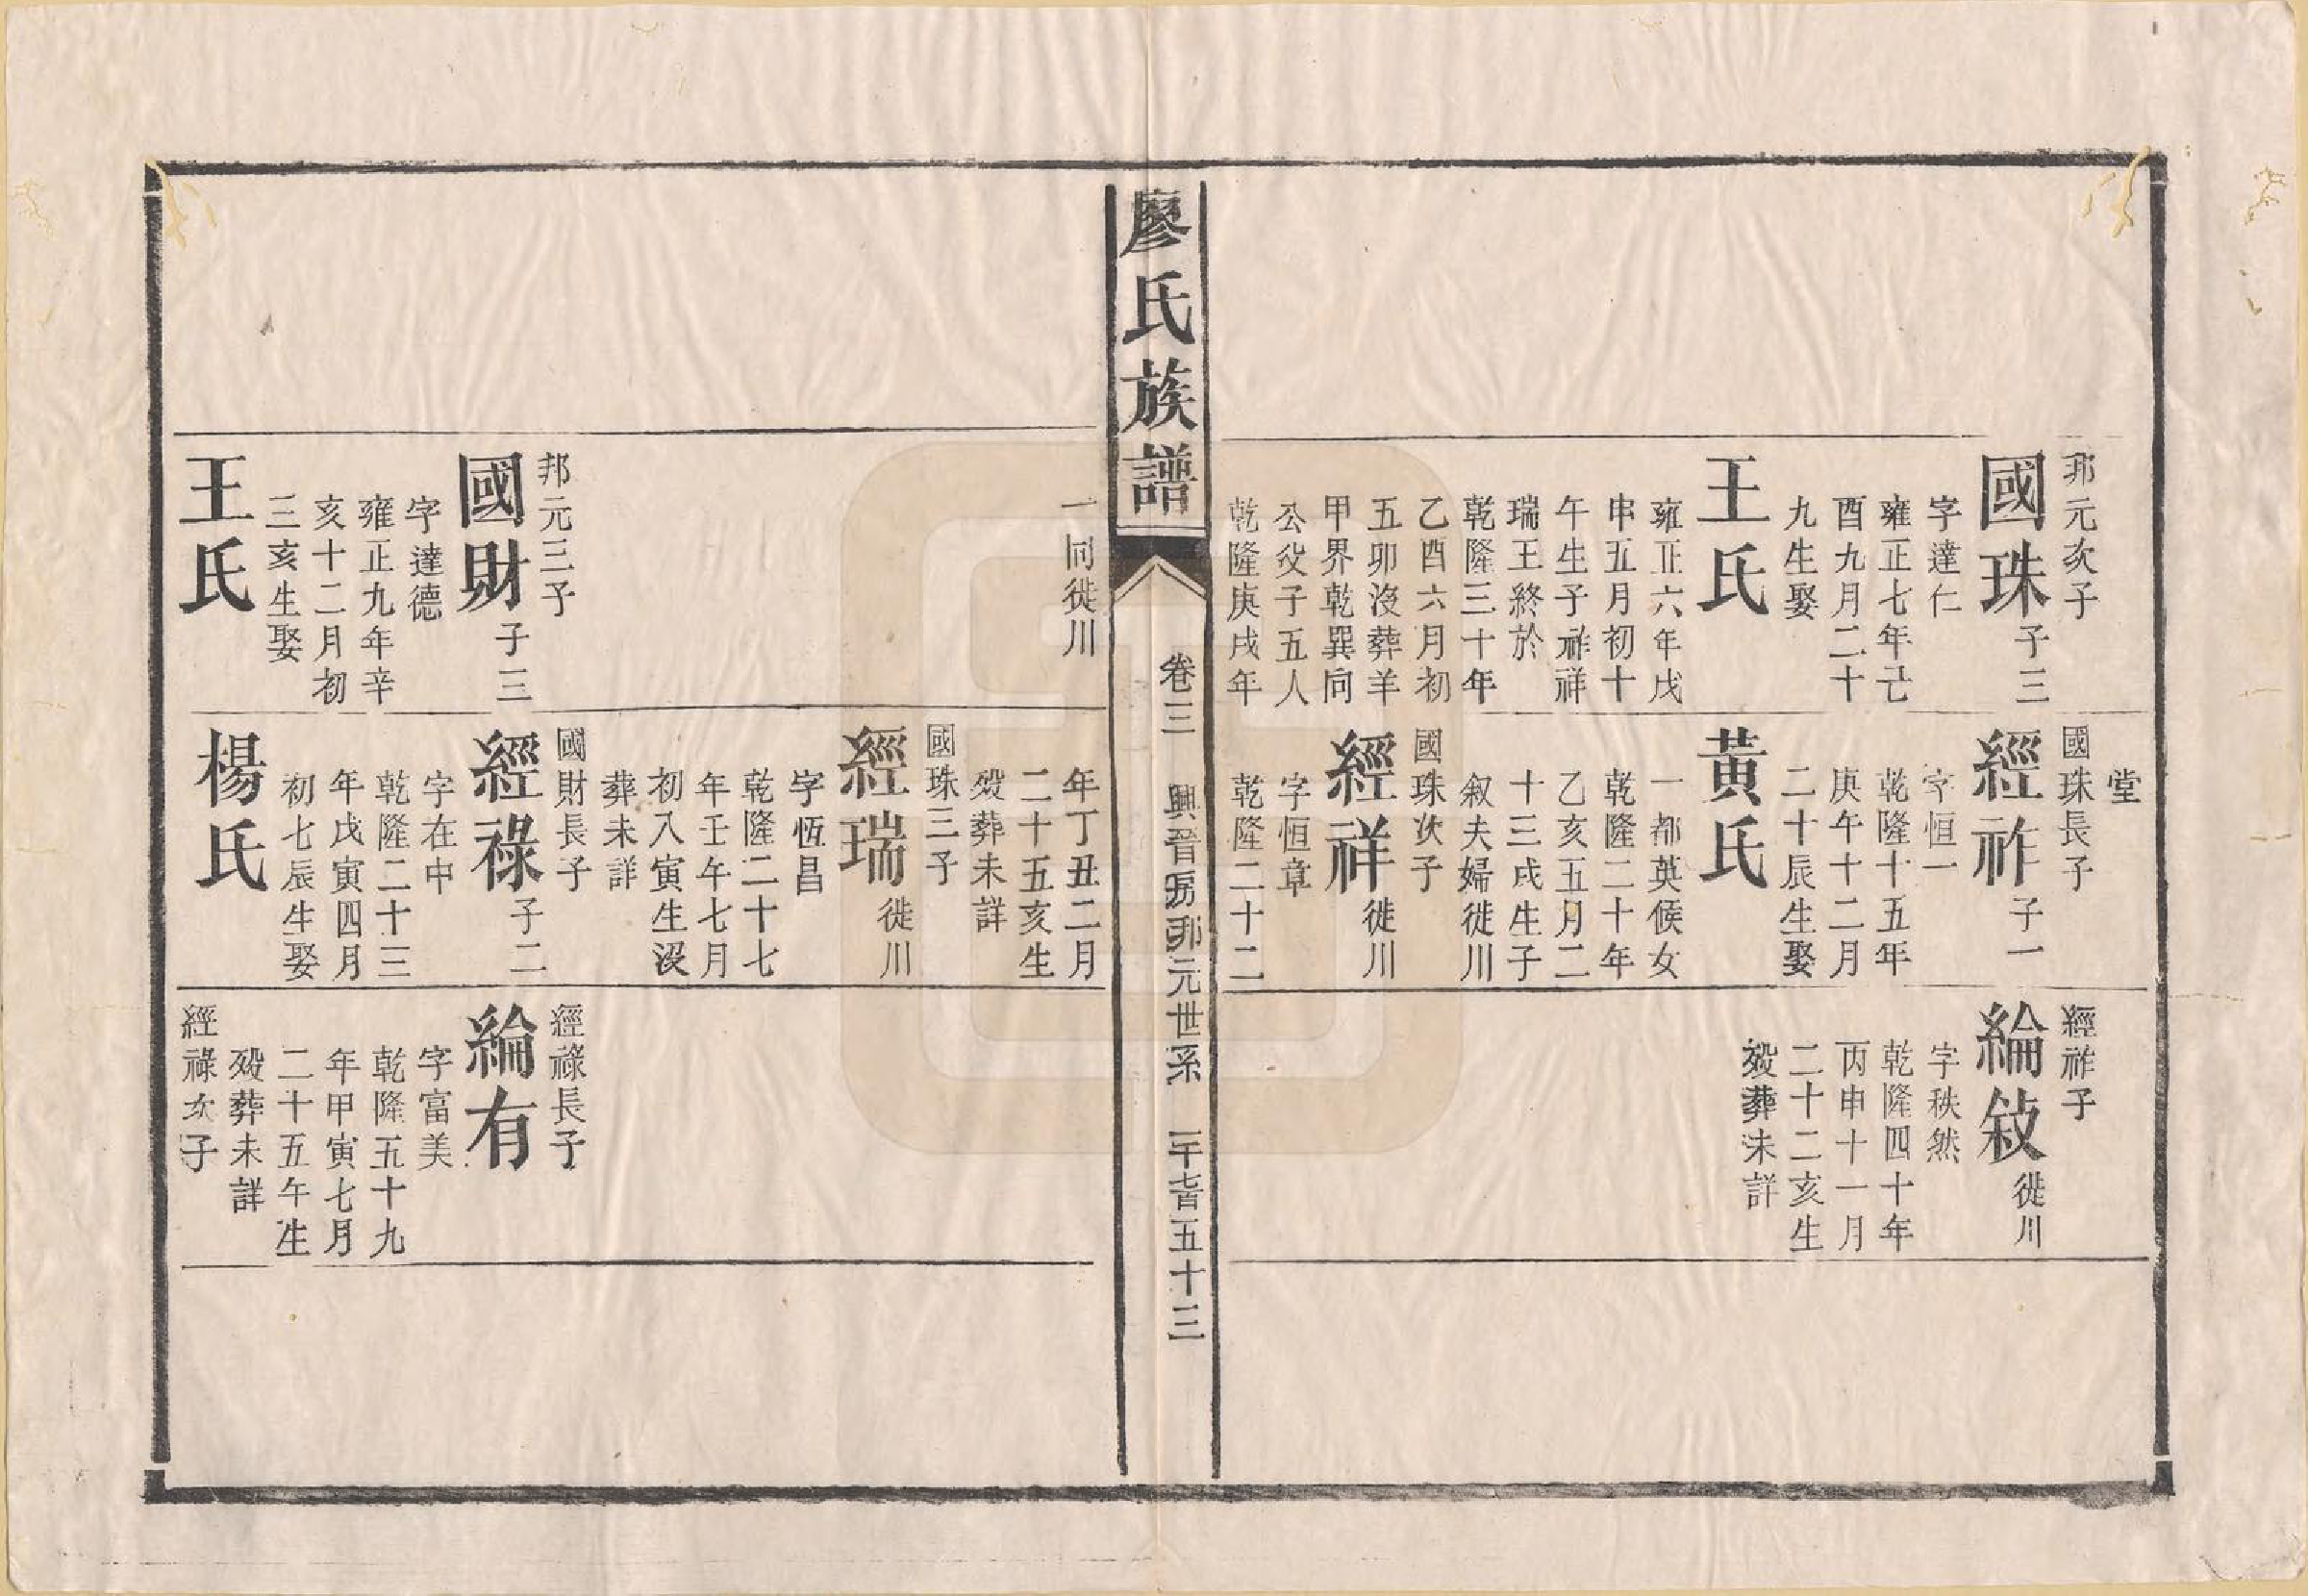 邦元次子
國珠子三
字達仁
雍正七年己
酉九月二十
九生娶
王氏
雍正六年戊
申五月初十
午生子祚祥
瑞王終於
乾隆三十年
乙酉六月初
五卯沒葬羊
甲界乾巽同
公役子五人
乾隆庚戌年
堂
國珠長子
經祚子一
字恒一
乾隆十五年
庚午十二月
二十辰生娶
黃氏
一都英候女
乾隆二十年
乙亥五月二
十三戌生子
敘夫婦徙川
國珠次子
經祥徙川
字恒章
乾隆二十二
經祚子
綸敍徙川
字秩然
乾隆四十年
丙申十一月
二十二亥生
歿葬未詳
廖氏族譜
卷三 興晉房邦元世系 一千七百五十三
一同徙川
邦元三子
國財子三
字達德
雍正九年辛
亥十二月初
三亥生娶
王氏
年丁丑二月
二十五亥生
歿葬未詳
國珠三子
經瑞徙川
字恆昌
乾隆二十七
年壬午七月
初八寅生沒
葬未詳
國財長子
經祿子二
字在中
乾隆二十三
年戊寅四月
初七辰生娶
楊氏
經祿長子
綸有
字富美
乾隆五十九
年甲寅七月
二十五午生
歿葬未詳
經祿次子